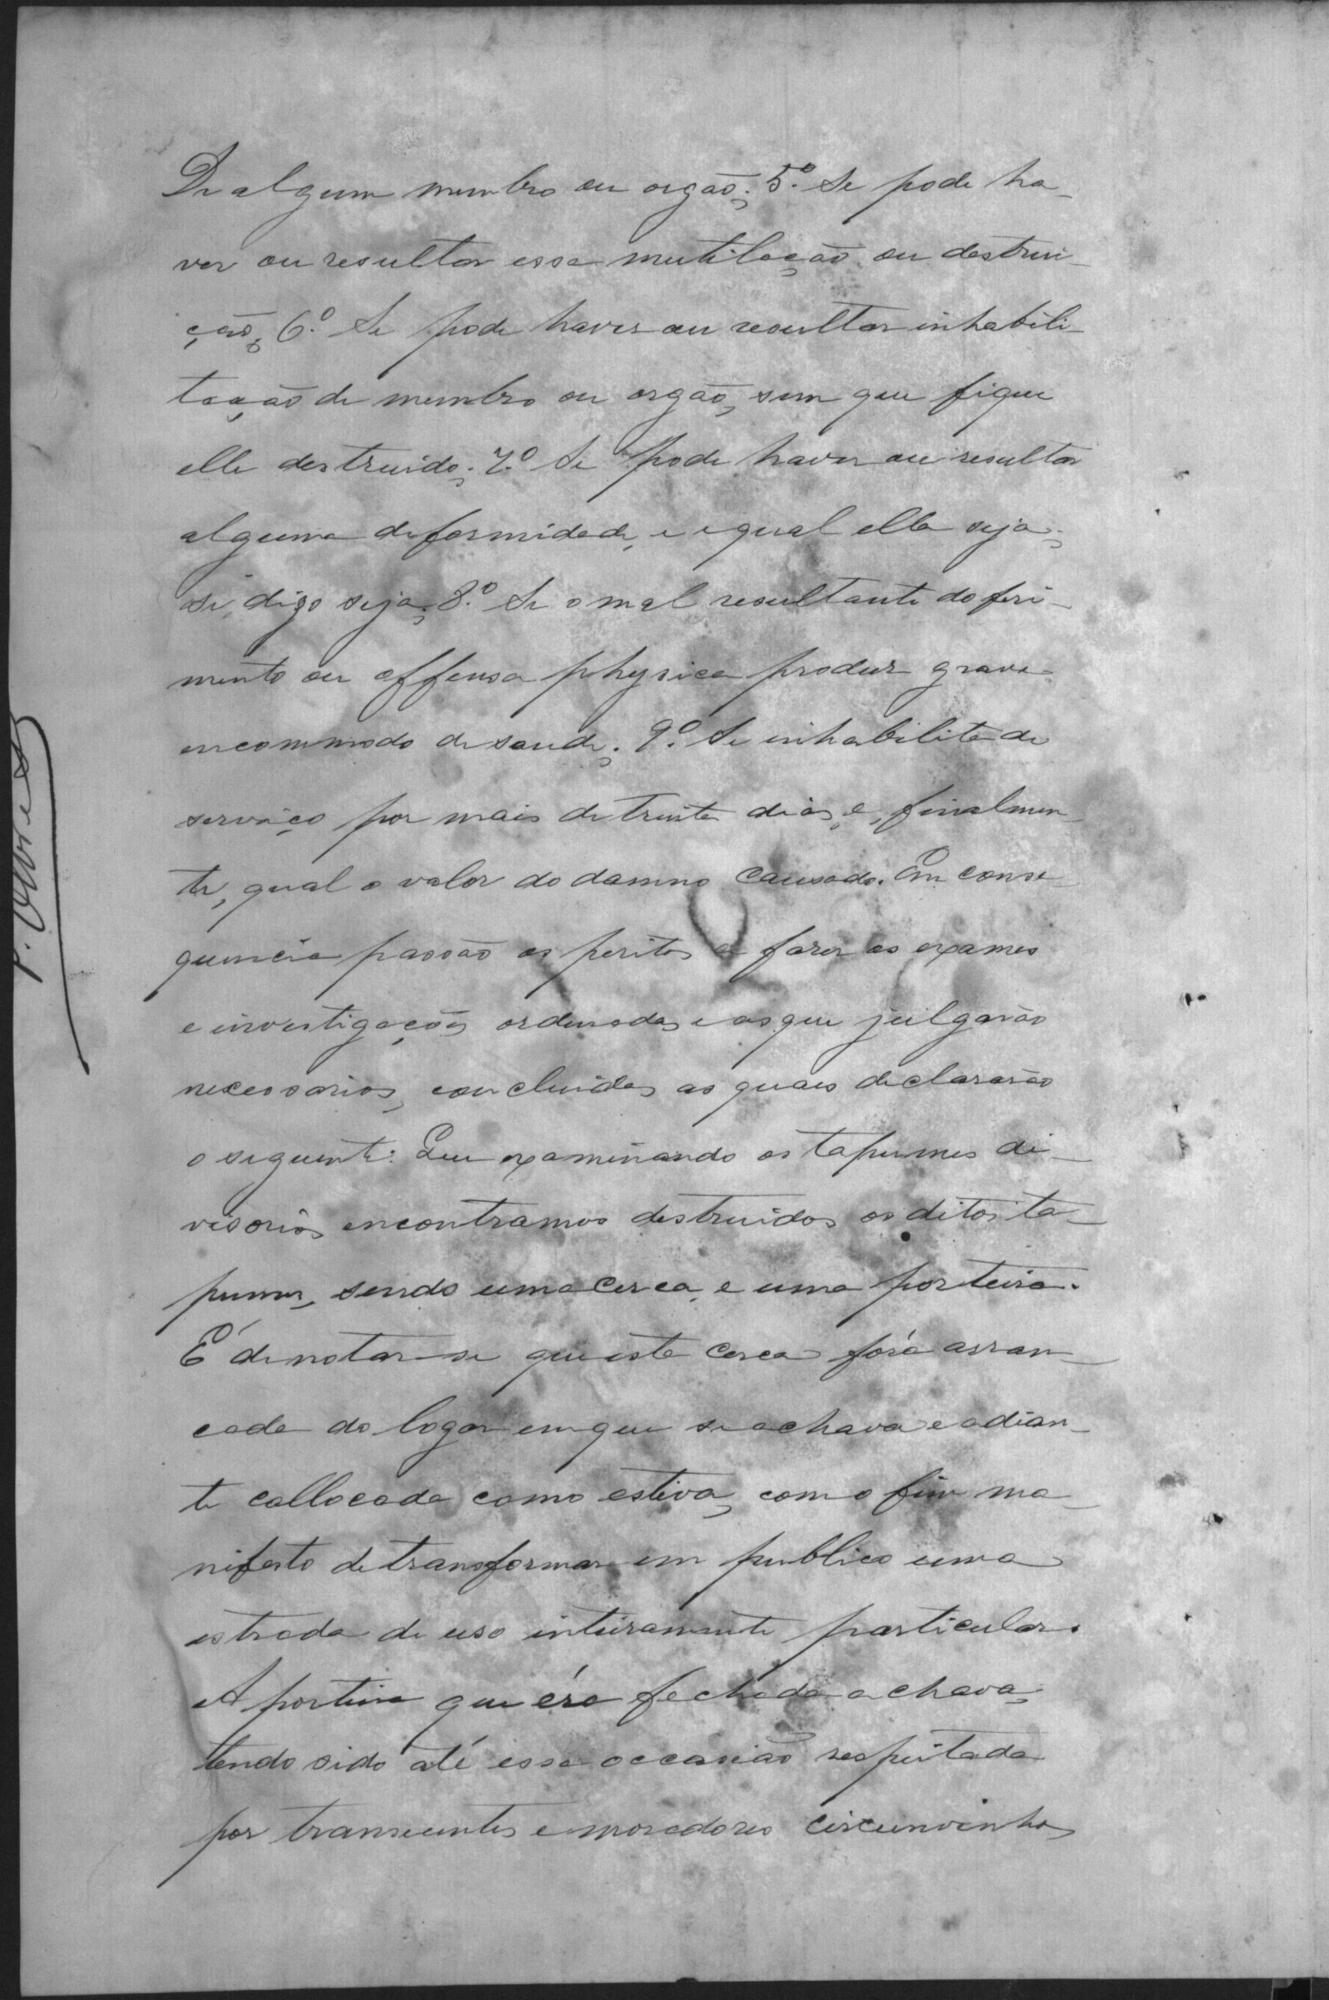 De algum membro ou orgão; 5.º Se pode ha-
ver ou resultar essa mutilação ou destrui-
ção; 6.º Se pode haver ou resultar inhabili-
tação de membro ou orgão, sem que fique
elle destruido; 7.º Se pode haver ou resultar
alguma deformidade, e qual ella seja;
se, digo seja; 8.º Se o mal resultante do feri-
mento ou offensa physica produz grave
encommodo de saude; 9.º Se inhabilita de
serviço por mais de trinta dias, e, finalmen-
te, qual o valor do damno causado. Em conse-
quencia passão os peritos a fazer os exames
e investigações ordenadas e as que julgarão
necessarias, concluidas as quaes declararão
o seguinte: Que examinando os tapumes di-
visorios encontramos destruidos os ditos ta-
pumes, sendo uma cerca, e uma porteira.
É de notar-se que esta cerca fóra arran-
cada do logar em que se achava e adian-
te collocada como estiva, com o fim ma-
nifesto de transformar em publico uma
estrada de uso inteiramente particular.
A porteira que éra fechada a chave,
tendo sido até essa occasião respeitada
por transeuntes e moradores circumvinhos
P. Alves